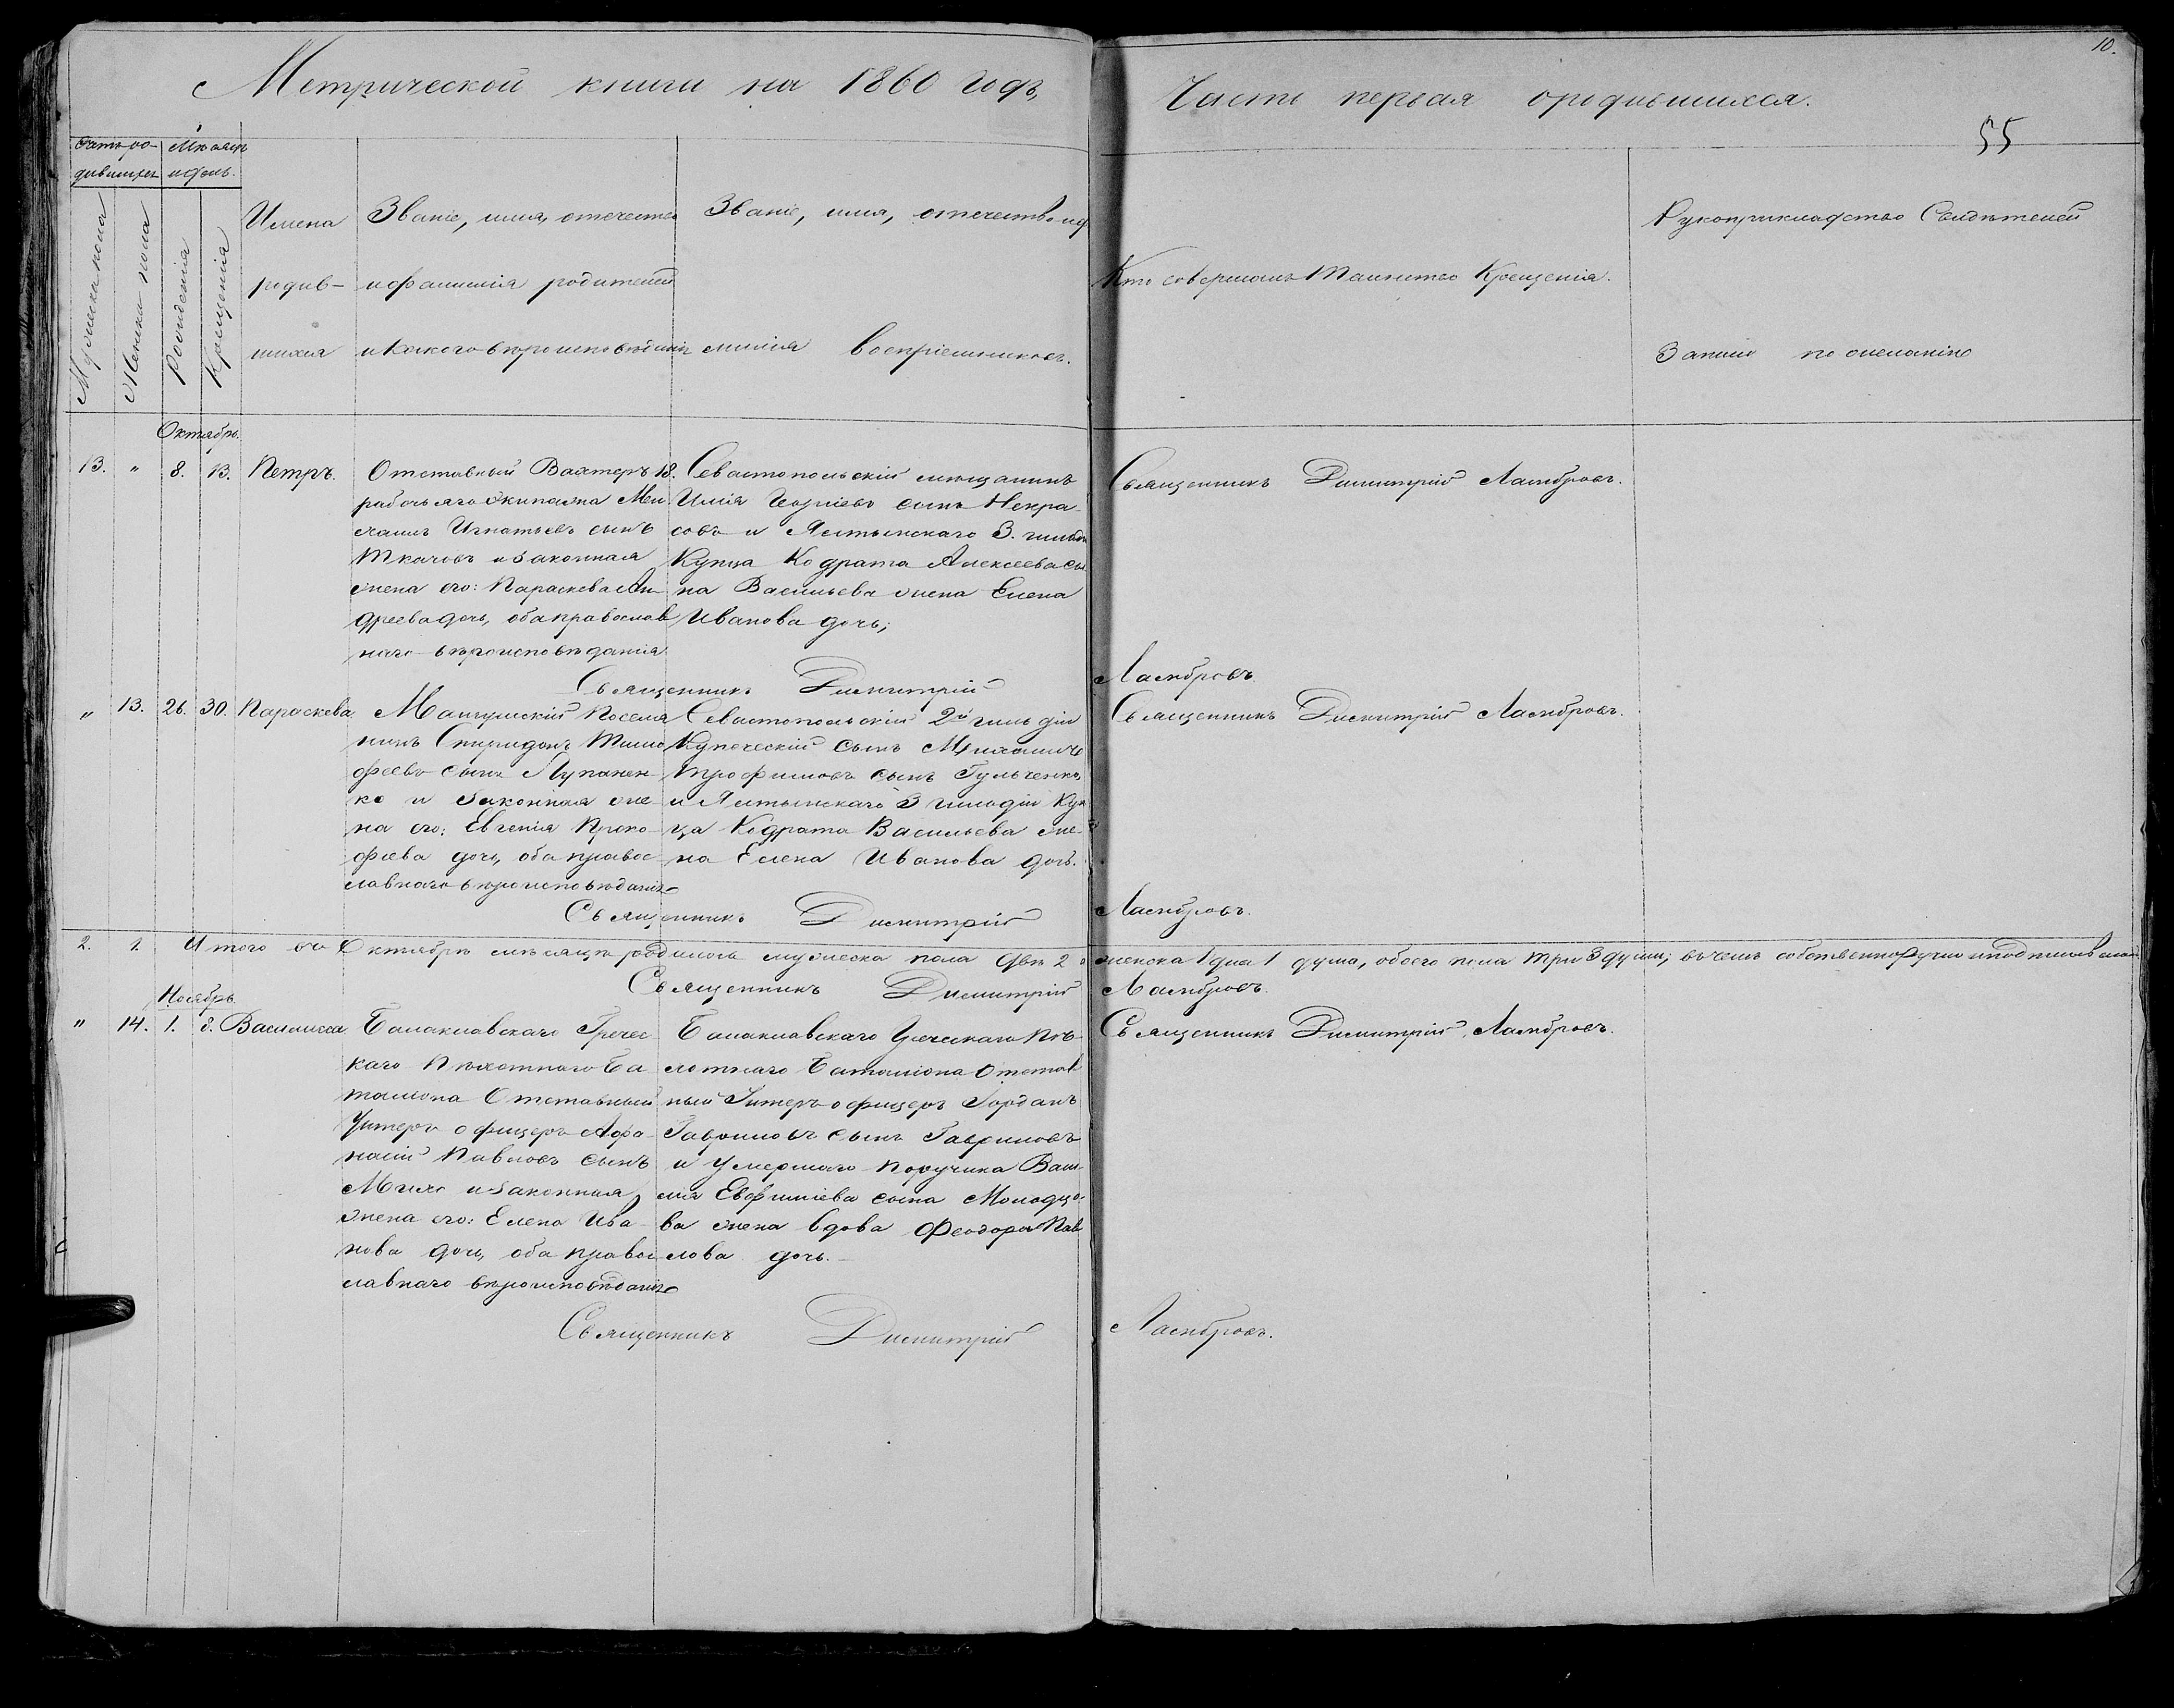 Метрической книги на 1860 годъ,
Часть первая о родившихся.
10.
55
Счетъ ро-
дившихся
Мѣсяцъ
и день.
Мужеска пола
Женска пола
Рожденія
Крещенія
Имена
родив-
шихся
Званіе, имя, отечество
и фамилія родителей
и какого вѣроисповѣданія
Званіе, имя, отечество и фа-
милія воспріемниковъ.
Кто совершалъ таинство Крещенія.
Рукоприкладство Свидѣтелей
записи по желанію
Октябрь.
13. " 8. 13. Петръ.
Отставный Вахтеръ 18.
рабочьяго экипажа Ми-
хаилъ Игнатьевъ сынъ
Ткачовъ и законная
жена его: Параскева Ан-
дреева дочь, оба православ
наго вѣроисповѣданія
Севастопольскій мещанинъ
Илія Георгіевъ сынъ Некра-
совъ и Ялтынскаго 3. гильдіи
Купца Кодрата Алексеева сы-
на Васильева жена Елена
Иванова дочь;
Священникъ Димитрій Ламбровъ.
Священникъ Димитрій Ламбровъ
" 13. 26. 30. Параскева
Мангушскій Поселя
нинъ Спиридонъ Тимо
феевъ сынъ Лупанен-
ко и законная же-
на его: Евгенія Проко-
фіева дочь, оба правос-
лавнаго вѣроисповѣданія
Севастопольскій 2й гильдіи
Купеческій сынъ Михаилъ
Трофимовъ сынъ Гульченко,
и Ялтынскаго 3 гильдіи Куп
ца Кодрата Васильева же-
на Елена Иванова дочь.
Священникъ Димитрій Ламбровъ.
Священникъ Димитрій Ламбровъ.
2. 1. Итого въ Октябрѣ мѣсяцѣ родилось мужеска пола два 2 женска одна 1 душа, обоего пола три 3 души; въ чемъ собственноручно и подписываемся
Священникъ Димитрій Ламбровъ.
Ноябрь.
" 14. 1. 8. Василисса
Балаклавскаго Гречес
каго Пѣхотнаго Ба
таліона Отставный
Унтеръ офицеръ Афа-
насій Павловъ сынъ
и законная
жена его: Елена Ива-
нова дочь, оба правос-
лавнаго вѣроисповѣданія
Балаклавскаго Греческаго Пѣ-
хотнаго Баталіона Отстав
ный Унтеръ офицеръ Іорданъ
Гавриловъ сынъ Гавриловъ
и умершаго Поручика Васи-
лія Евфиміева сына Молодцо-
ва жена вдова Феодора Пав
лова дочь.
Священникъ Димитрій Ламбровъ.
Священникъ Димитрій Ламбровъ.